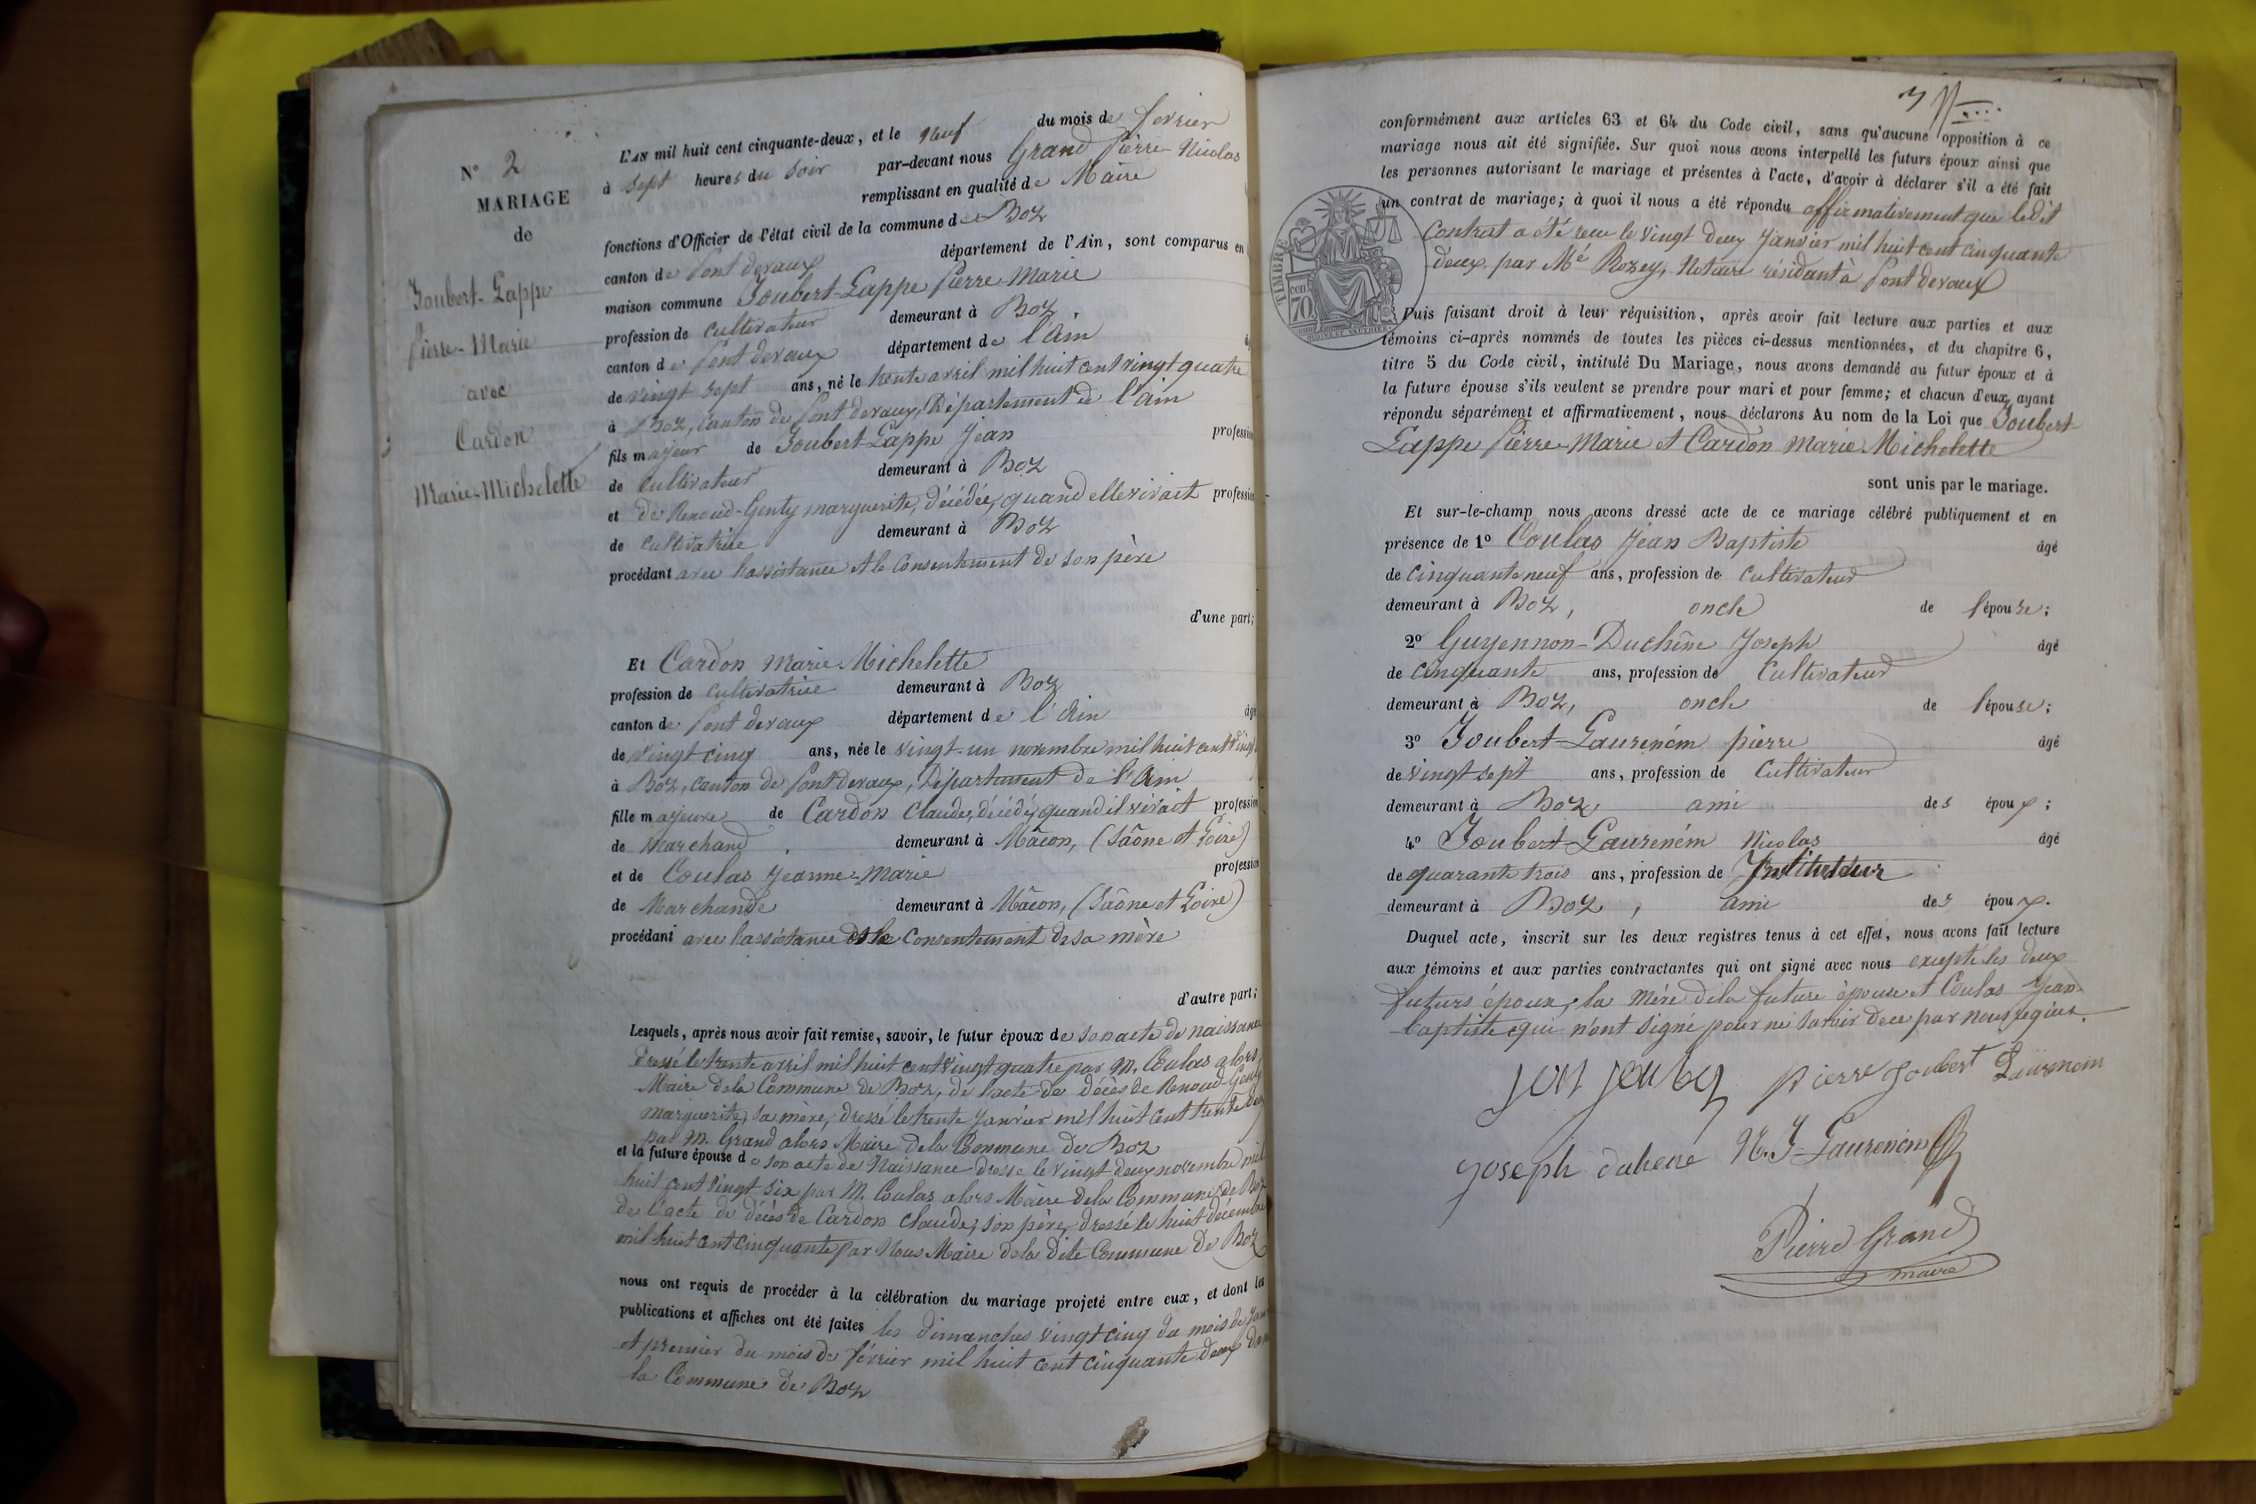 N° 2
MARIAGE
de
Joubert-Lappe
Pierre-Marie
avec
Cardon
Marie-Michelette
L'AN mil huit cent cinquante-deux, et le neuf du mois de février
à sept heures du soir par-devant nous Grand Pierre-Nicolas
remplissant en qualité de Maire
fonctions d'Officier de l'état civil de la commune de Boz
canton de Pont devaux département de l'Ain, sont comparus en
maison commune Joubert-Lappe Pierre Marie
profession de cultivateur demeurant à Boz
canton de Pont devaux département de l'ain
de vingt sept ans, né le trente avril mil huit cent vingt quatre
à Boz, canton de Pont devaux, Département de l'ain
fils majeur de Joubert-Lappe Jean profession
de cultivateur demeurant à Boz
et de Renoud-Genty marguerite, décédée, quand elle vivait profession
de cultivatrice demeurant à Boz
procédant avec l'assistance et le consentement de son père
d'une part;
Et Cardon Marie Michelette
profession de cultivatrice demeurant à Boz
canton de Pont devaux département de l'Ain âgé
de vingt cinq ans, née le vingt-un novembre mil huit cent vingt
à Boz, canton de Pont devaux, Département de l'Ain
fille majeure de Cardon Claude, décédé, quand il vivait profession
de Marchand, demeurant à Mâcon, (Saône et Loire)
et de Coulas Jeanne-Marie profession
de Marchande demeurant à Mâcon, (Saône et Loire)
procédant avec l'assistance et le consentement de sa mère
d'autre part;
Lesquels, après nous avoir fait remise, savoir, le futur époux de son acte de naissance
dressé le trente avril mil huit cent vingt quatre par M. Coulas alors
Maire de la Commune de Boz, de l'acte de décès de Renoud-Genty
marguerite, sa mère, dressé le trente janvier mil huit cent trente
par M. Grand alors Maire de la Commune de Boz
et la future épouse de son acte de Naissance dressé le vingt deux novembre mil
huit cent vingt-six par M. Coulas alors Maire de la Commune de Boz
de l'acte de décès de Cardon Claude, son père, dressé le huit décembre
mil huit cent cinquante par Nous Maire de la dite Commune de Boz
nous ont requis de procéder à la célébration du mariage projeté entre eux, et dont les
publications et affiches ont été faites les dimanches vingt cinq du mois de
et premier du mois de février mil huit cent cinquante deux
la Commune de Boz
3
conformément aux articles 63 et 64 du Code civil, sans qu'aucune opposition à ce
mariage nous ait été signifiée. Sur quoi nous avons interpellé les futurs époux ainsi que
les personnes autorisant le mariage et présentes à l'acte, d'avoir à déclarer s'il a été fait
un contrat de mariage; à quoi il nous a été répondu affirmativement que ledit
Contrat a été reçu le vingt deux Janvier mil huit cent cinquante
deux, par Me Rozey, Notaire résidant à Pont devaux
TIMBRE
cen
70
Puis faisant droit à leur réquisition, après avoir fait lecture aux parties et aux
témoins ci-après nommés de toutes les pièces ci-dessus mentionnées, et du chapitre 6,
titre 5 du Code civil, intitulé Du Mariage, nous avons demandé au futur époux et à
la future épouse s'ils veulent se prendre pour mari et pour femme; et chacun d'eux ayant
répondu séparément et affirmativement, nous déclarons Au nom de la Loi que Joubert
Lappe Pierre-Marie et Cardon Marie Michelette
sont unis par le mariage.
Et sur-le-champ nous avons dressé acte de ce mariage célébré publiquement et en
présence de 1° Coulas Jean Baptiste âgé
de cinquante neuf ans, profession de cultivateur
demeurant à Boz, oncle de l'épouse;
2° Guyennon-Duchêne Joseph âgé
de cinquante ans, profession de cultivateur
demeurant à Boz, oncle de l'épouse;
3° Joubert-Laurencin pierre âgé
de vingt sept ans, profession de cultivateur
demeurant à Boz, ami des époux;
4° Joubert-Laurencin Nicolas âgé
de quarante trois ans, profession de Instituteur
demeurant à Boz, ami des époux.
Duquel acte, inscrit sur les deux registres tenus à cet effet, nous avons fait lecture
aux témoins et aux parties contractantes qui ont signé avec nous excepté les deux
futurs époux, la mère de la future épouse et Coulas Jean-
baptiste qui n'ont signé pour ne savoir de ce par nous requis.
jean joubert pierre joubert Laurencin
joseph duchene N. J-Laurencin
Pierre Grand
maire